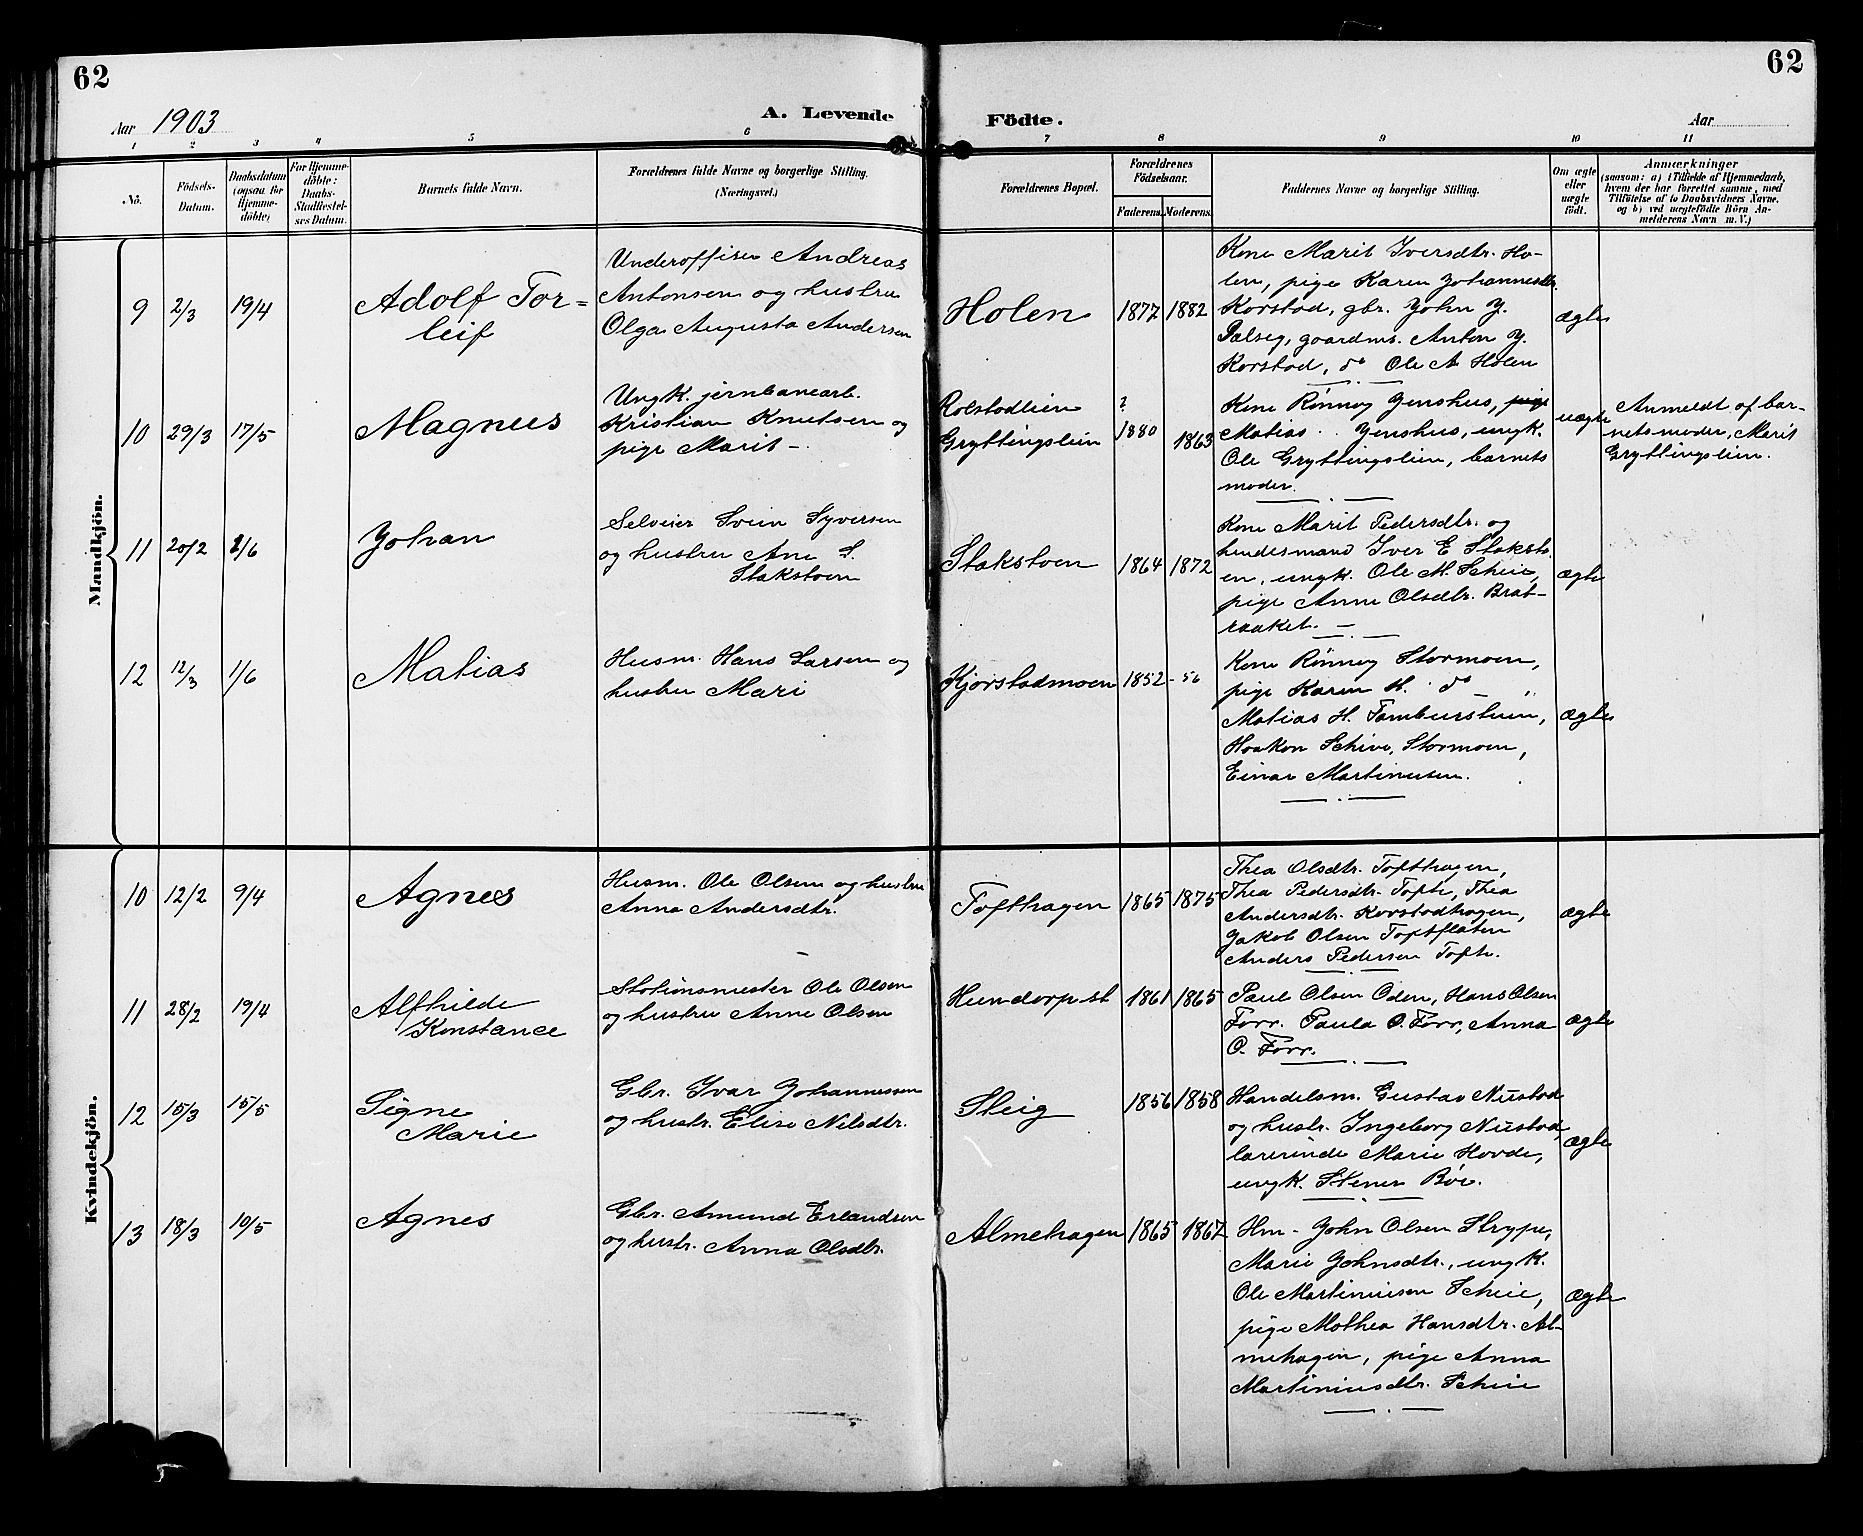 62
62
Aar 1903
A. Levende
Födte.
Aar
1 2 3 4 5 6 7 8 9 10 11
Nö.
Födsels-
Datum.
Daabsdatum
(ogsaa for
Hjemme-
döbte)
For Hjemme-
döbte:
Daabs-
Stadfæstel-
ses Datum.
Barnets fulde Navn.
Forældrenes fulde Navne og borgerlige Stilling.
(Næringsvei.)
Forældrenes Bopæl.
Forældrenes
Födselsaar.
Faderens.
Moderens.
Faddernes Navne og borgerlige Stilling.
Om ægte
eller
uægte
födt.
Anmærkninger
(saasom: a) i Tilfælde af Hjemmedaab,
hvem der har forrettet samme, med
Tilföielse af to Daabsvidners Navne.
og b) ved uægtefödte Börn An-
melderens Navn m. V.)
Mandkjön.
9 2/3 19/4
Adolf Tor-
leif
Underoffiser Andreas
Antonsen og hustru
Olga Augusta Andersen
Holen
1877 1882
Kone Marit Iversdtr. Ho-
len, pige Karen Johannesdtr.
Korstad, gbr. John J.
Sålseg, gaardmr. Anton J.
Korstad, do Ole A Holen
ægte
10 29/3 17/5
Magnus
Ungk. jernbanearb.
Kristian Knutsen og
pige Marit -
Rolstadlien
Gryttingslien
?
1880 1863
Kone Rønnøg Jenshus, pige
Matias Jenshus, ungk.
Ole Gryttingslien, barnets
moder.
uægte
Anmeldt af bar-
nets moder, Marit
Gryttingslien.
11 20/2 1/6
Johan
Selveier Svein Syversen
og hustru Ane S.
Stakstoen
Stakstoen
1864 1872
Kone Marit Pedersdtr. og
hendes mand Iver E Staksto-
en, ungk. Ole M. Skeie,
pige Anne Olsdtr. Brat-
raaket. -
ægte
12 12/3 1/6
Matias
Husm. Hans Larsen og
hustru Mari
Kjorstadmoen
1852 - 56
Kone Rønnøg Stormoen,
pige Karen H. do - "
Matias H. Tamburstuen,
Haakon Schive, Stormoen,
Einar Martinusen.
ægte
Kvindekjön.
10 12/2 9/4
Agnes
Husm. Ole Olsen og hustru
Anna Andersdtr.
Tofthagen
1865 1875
Thea Olsdtr. Tofthagen,
Thea Pedersdtr. Tofte, Thea
Andersdtr. Korstadhagen,
Jakob Olsen Toftflaten
Anders Pedersen Tofte.
ægte
11 28/2 19/4
Alfhilde
Konstance
Stationsmester Ole Olsen
og hustru Anne Olsen
Hundorp st
1861 1865
Paul Olsen Oden, Hans Olsen
Forr. Paula O. Forr, Anna
O. Forr.
ægte
12 15/3 15/5
Signe
Marie
Gbr. Ivar Johannessen
og hustr. Elise Nilsdtr.
Steig
1856 1858
Handelsm. Gustav Nustad
og hustr. Ingeborg Nustad,
lærerinde Marie Hovde,
ungk. Stener Bøe.
ægte
13 18/3 10/5
Agnes
Gbr. Amund Erlandsen
og hustr. Anna Olsdtr.
Almehagen
1865 1867
Hm - John Olsen Strype,
Marie Johnsdtr., ungk.
Ole Martiniusen Skeie,
pige Mathea Hansdtr. Al-
mehagen, pige Anna
Martiniusdtr. Skeie
ægte